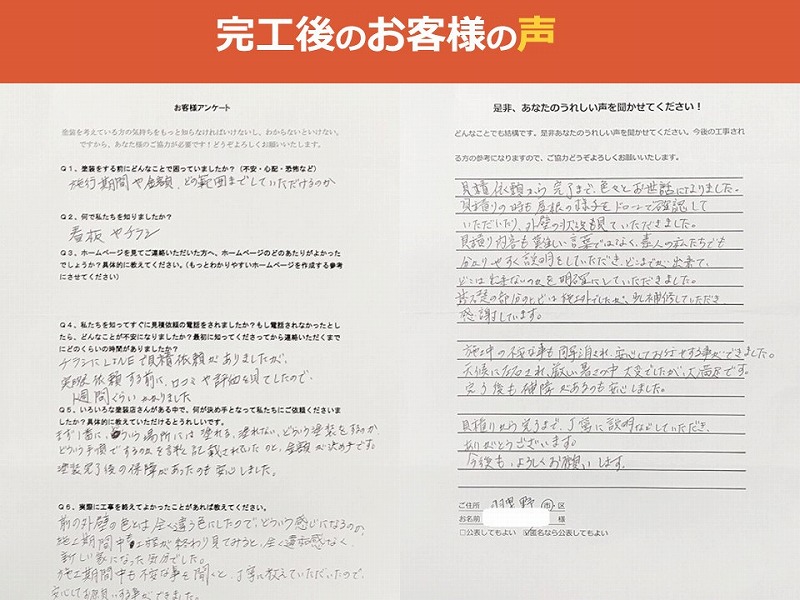 完工後のお客様の声
お客様アンケート
塗装を考えている方の気持ちをもっと知らなければいけないし、わからないといけない。
ですから、あなた様のご協力が必要です！どうぞよろしくお願いいたします。
Q1、塗装をする前にどんなことで困っていましたか？（不安・心配・恐怖など）
施行期間や金額、どの範囲までしていただけるのか
Q2、何で私たちを知りましたか？
看板やチラシ
Q3、ホームページを見てご連絡いただいた方へ、ホームページのどのあたりがよかった
でしょうか？具体的に教えてください。（もっとわかりやすいホームページを作成する参考
にさせてください）
Q4、私たちを知ってすぐに見積依頼の電話をされましたか？もし電話されなかったとし
たら、どんなことが不安になりましたか？最初に知ってくださってから連絡いただくまで
にどのくらいの時間がありましたか？
チラシにLINEで見積依頼がありましたが、
実際依頼する前に、口コミや評価を見てしたので
1週間ぐらいかかりました
Q5、いろいろな塗装店さんがある中で、何が決め手となって私たちにご依頼くださいま
したか？具体的に教えていただけるとうれしいです。
まず1番に、どういう場所には塗れる、塗れない、どういう塗装をするのか
どういう手順でするのかを
記載されていたのと、金額が決め手です。
塗装完了後の保障があったのも安心しました。
Q6、実際に工事を終えてよかったことがあれば教えてください。
前の外壁の色とは全く違う色にしたので、どういう感じになるのか
施工期間中 工程が終わり見てみると、全く違和感なく、
新しい家になった気分でした。
施工期間中も不安な事を聞くと、丁寧に教えていただいたので、
安心してお願いする事ができました。
是非、あなたのうれしい声を聞かせてください！
どんなことでも結構です。是非あなたのうれしい声を聞かせてください。今後の工事され
る方の参考になりますので、ご協力どうぞよろしくお願いいたします。
見積依頼から完了まで、色々とお世話になりました。
見積りの時も屋根の様子をドローンで確認して
いただいたり、外壁の状況も見ていただきました。
見積り内容も難しい言葉ではなく、素人の私たちでも
分かりやすく説明をしていただき、どこまでが出来て、
どこは出来ないのかを明確にしていただきました。
の部分のヒビは対象外でしたが、補修していただき
感謝しています。
施工中の不安な事も解消され、安心してお任せする事ができました。
天候に左右され、厳しい暑さの中大変でしたが、大満足です。
完了後も保障があるのも安心しました。
見積りから完了まで、丁寧に説明などしていただき、
ありがとうございます。
今後も、よろしくお願いします。
ご住所 羽曳野 市 区
お名前 様
□公表してもよい ☑匿名なら公表してもよい